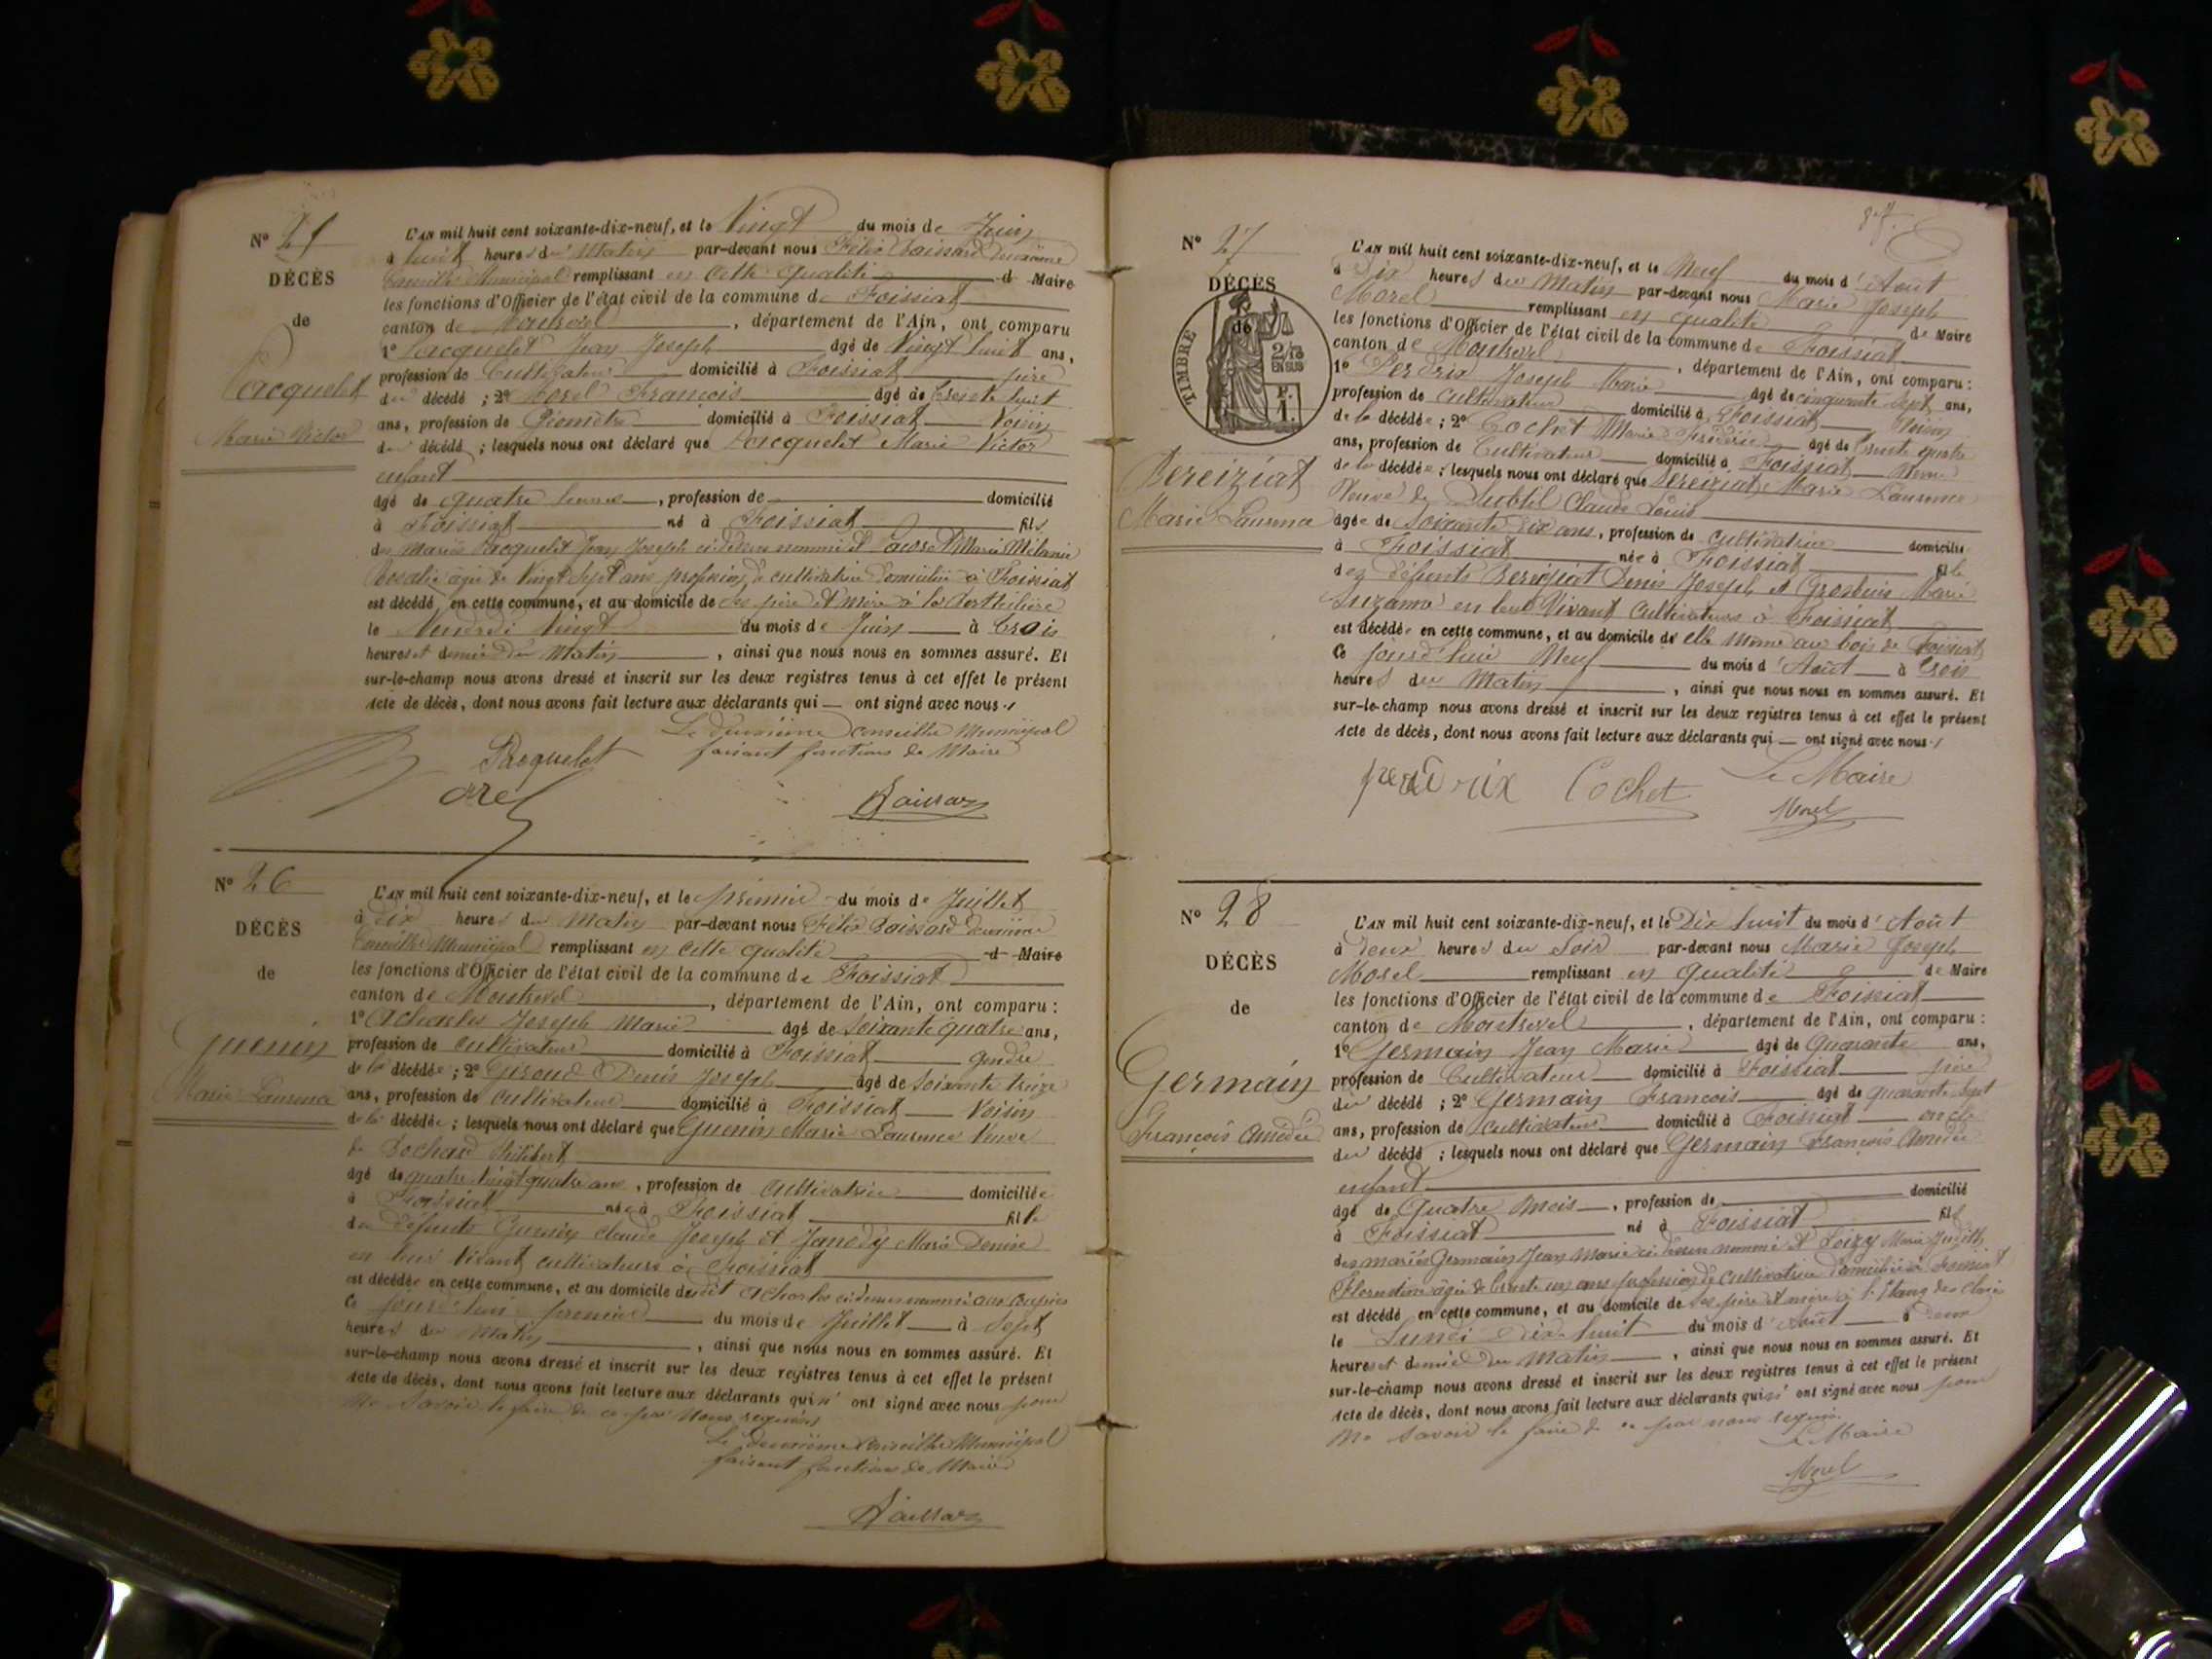 N° 25
DÉCÈS
de
Pacquelet
Marie Victor
L'AN mil huit cent soixante-dix-neuf, et le Vingt du mois de Juin
à huit heures du Matin par-devant nous Félix Boissard deuxième
Conseiller Municipal remplissant en cette qualité d Maire
les fonctions d'Officier de l'état civil de la commune de Foissiat
canton de Montrevel, département de l'Ain, ont comparu
1° Pacquelet Jean Joseph âgé de Vingt huit ans,
profession de Cultivateur domicilié à Foissiat père
du décédé ; 2° Morel François âgé de trente huit
ans, profession de Géomètre domicilié à Foissiat Voisin
du décédé ; lesquels nous ont déclaré que Pacquelet Marie Victor
enfant
âgé de quatre heures, profession de domicilié
à Foissiat né à Foissiat fils
des mariés Pacquelet Jean Joseph ci dessus nommé et Marie Mélanie
Rosalie âgée de Vingt sept ans profession de cultivatrice domiciliée à Foissiat
est décédé en cette commune, et au domicile de ses père et mère à la
le Vendredi Vingt du mois de Juin à trois
heures et demie du Matin, ainsi que nous nous en sommes assuré. Et
sur-le-champ nous avons dressé et inscrit sur les deux registres tenus à cet effet le présent
Acte de décès, dont nous avons fait lecture aux déclarants qui — ont signé avec nous
Le deuxième conseiller Municipal
faisant fonctions de Maire
Pacquelet
Morel
Boissard
N° 26
DÉCÈS
de
Guenin
Marie Laurence
L'AN mil huit cent soixante-dix-neuf, et le premier du mois de Juillet
à dix heures du Matin par-devant nous Félix Boissard deuxième
Conseiller Municipal remplissant en cette qualité d Maire
les fonctions d'Officier de l'état civil de la commune de Foissiat
canton de Montrevel, département de l'Ain, ont comparu :
1° Acharles Joseph Marie âgé de soixante quatre ans,
profession de cultivateur domicilié à Foissiat gendre
de la décédée ; 2° Giroud Denis Joseph âgé de soixante treize
ans, profession de cultivateur domicilié à Foissiat Voisin
de la décédée ; lesquels nous ont déclaré que Guenin Marie Laurence Veuve
de Bochard Philibert
âgé de quatre vingt quatre ans, profession de cultivatrice domiciliée
à Foissiat née à Foissiat fille
des défunts Guenin Claude Joseph et Janody Marie Denise
en leur Vivant cultivateurs à Foissiat
est décédée en cette commune, et au domicile dudit Acharles ci dessus nommé aux
Ce jourd'hui premier du mois de Juillet à Sept
heures du Matin, ainsi que nous nous en sommes assuré. Et
sur-le-champ nous avons dressé et inscrit sur les deux registres tenus à cet effet le présent
Acte de décès, dont nous avons fait lecture aux déclarants qui n' ont signé avec nous pour
ne savoir le faire de ce par nous requis
Le deuxième conseiller Municipal
faisant fonctions de Maire
Boissard
87
N° 27
DÉCÈS
de
TIMBRE
2/10
EN SUS
P.
1.
Bereiziat
Marie Laurence
L'AN mil huit cent soixante-dix-neuf, et le Neuf du mois d'Août
à Dix heures du Matin par-devant nous Marie Joseph
Morel remplissant en qualité de Maire
les fonctions d'Officier de l'état civil de la commune de Foissiat
canton de Montrevel, département de l'Ain, ont comparu :
1° Perdrix Joseph Marie âgé de cinquante sept ans,
profession de cultivateur domicilié à Foissiat Voisin
de la décédée ; 2° Cochet Marie Frédéric âgé de trente quatre
ans, profession de Cultivateur domicilié à Foissiat
de la décédée ; lesquels nous ont déclaré que Bereiziat Marie Laurence
Veuve de Subtil Claude Louis
âgée de soixante dix ans, profession de cultivatrice domicilié
à Foissiat née à Foissiat fille
des défunts Bereiziat Denis Joseph et Marie
Suzanne en leur Vivant cultivateurs à Foissiat
est décédée en cette commune, et au domicile de elle même au bois de Foissiat
Ce jourd'hui Neuf du mois d'Août à trois
heures du Matin, ainsi que nous nous en sommes assuré. Et
sur-le-champ nous avons dressé et inscrit sur les deux registres tenus à cet effet le présent
Acte de décès, dont nous avons fait lecture aux déclarants qui — ont signé avec nous
perdrix Cochet Le Maire
Morel
N° 28
DÉCÈS
de
Germain
François Amédée
L'AN mil huit cent soixante-dix-neuf, et le Dix huit du mois d'Août
à deux heures du Soir par-devant nous Marie Joseph
Morel remplissant en qualité de Maire
les fonctions d'Officier de l'état civil de la commune de Foissiat
canton de Montrevel, département de l'Ain, ont comparu :
1° Germain Jean Marie âgé de quarante ans,
profession de Cultivateur domicilié à Foissiat père
du décédé ; 2° Germain François âgé de quarante sept
ans, profession de cultivateur domicilié à Foissiat oncle
du décédé ; lesquels nous ont déclaré que Germain François Amédée
enfant
âgé de Quatre mois, profession de domicilié
à Foissiat né à Foissiat fils
des mariés Germain Jean Marie ci dessus nommé et Marie Judith
Florentine âgée de trente un ans profession de cultivatrice domiciliée à Foissiat
est décédé en cette commune, et au domicile de ses père et mère à l'étang
le Lundi dix huit du mois d'Août à Deux
heures et demie du Matin, ainsi que nous nous en sommes assuré. Et
sur-le-champ nous avons dressé et inscrit sur les deux registres tenus à cet effet le présent
Acte de décès, dont nous avons fait lecture aux déclarants qui n' ont signé avec nous pour
ne savoir le faire de ce par nous requis.
Le Maire
Morel